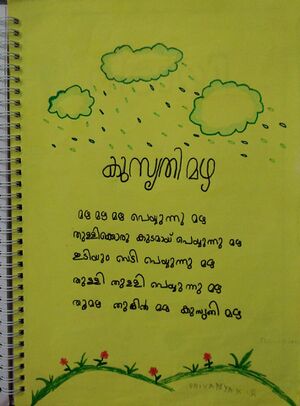 കുസൃതി മഴ
മഴ മഴ മഴ പെയ്യുന്നു മഴ
തുള്ളിക്കൊരു കുടമായ് പെയ്യുന്നു മഴ
ഇടിയും വെടി പെയ്യുന്നു മഴ
തുള്ളി തുള്ളി പെയ്യുന്നു മഴ
തൂമഴ തൂകിൻ മഴ കുസൃതി മഴ